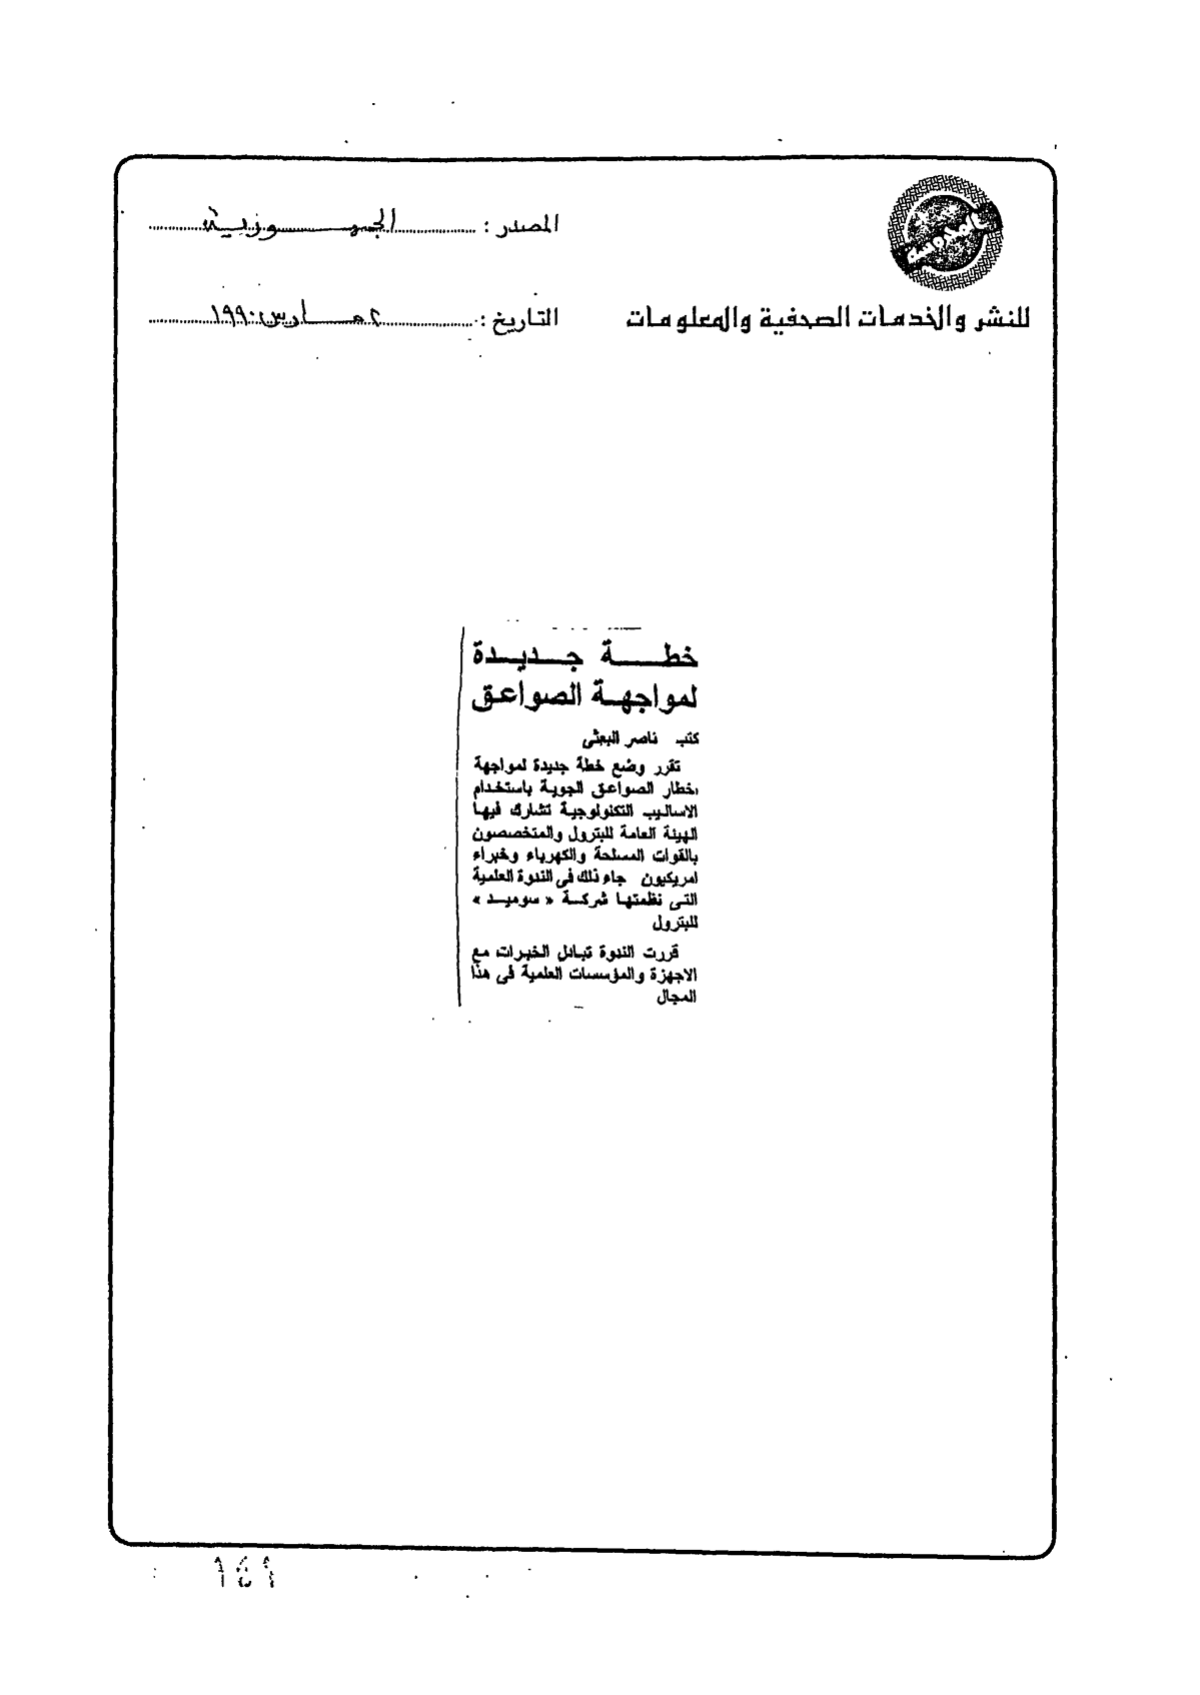 المصدر : الجمهورية
للنشر والخدمات الصحفية والمعلومات
التاريخ : ٢ مارس ١٩٩٠
خطة جديدة
لمواجهة الصواعق
كتب ناصر البعثى
تقرر وضع خطة جديدة لمواجهة
اخطار الصواعق الجوية باستخدام
الاساليب التكنولوجية تشارك فيها
الهيئة العامة للبترول والمتخصصون
بالقوات المسلحة والكهرباء وخبراء
امريكيون جاء ذلك فى الندوة العلمية
التى نظمتها شركة « سوميد »
للبترول
قررت الندوة تبادل الخبرات مع
الاجهزة والمؤسسات العلمية فى هذا
المجال